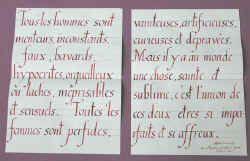 Tous les hommes sont
menteurs, inconstants,
faux, bavards,
hypocrites, orgueilleux
ou lâches, méprisables
et sensuels. Toutes les
femmes sont perfides,
vaniteuses, artificieuses,
curieuses et dépravées.
Mais il y a au monde
une chose sainte et
sublime, c'est l'union de
ces deux êtres si impar-
faits et si affreux.